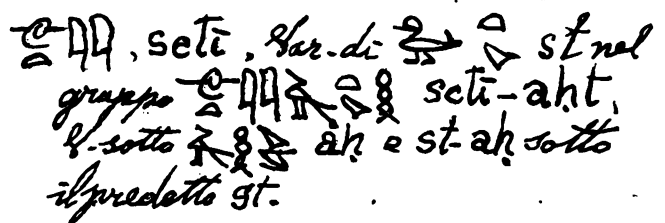 , setī, Var. di st nel
gruppo setī-aḥt,
V. sotto aḥ e st-aḥ sotto
il predetto st.